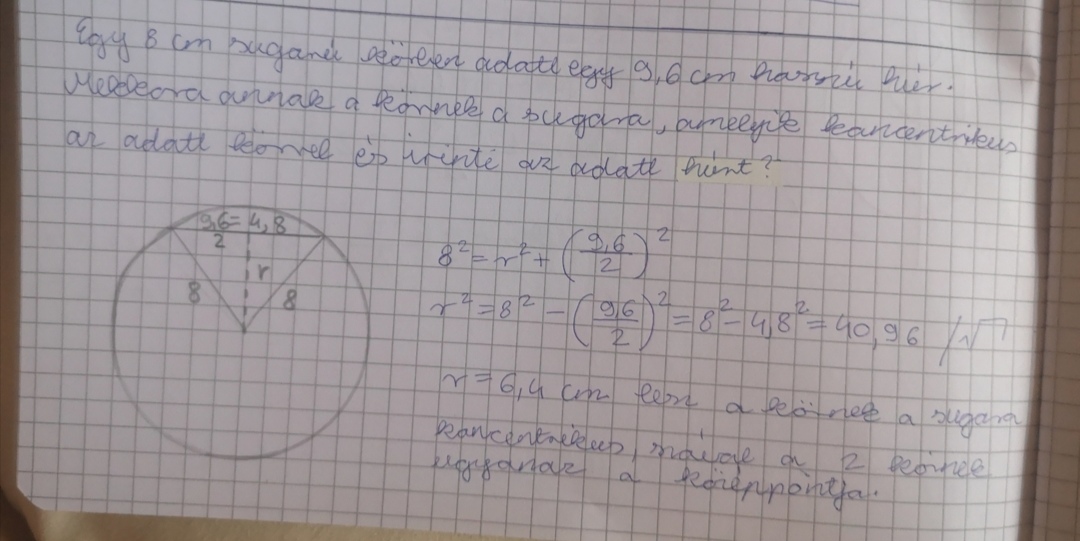 Egy 8 cm sugarú körben adott egy 9,6 cm hosszú húr.
Mekkora annak a körnek a sugara, amelyik koncentrikus
az adott körrel és érinti az adott húrt?
9,6/2 = 4,8
r
8 8
8² = r² + (9,6/2)²
r² = 8² - (9,6/2)² = 8² - 4,8² = 40,96 /√
r = 6,4 cm lesz a körnek a sugara
koncentrikus, mivel a 2 körnek
ugyanaz a középpontja.